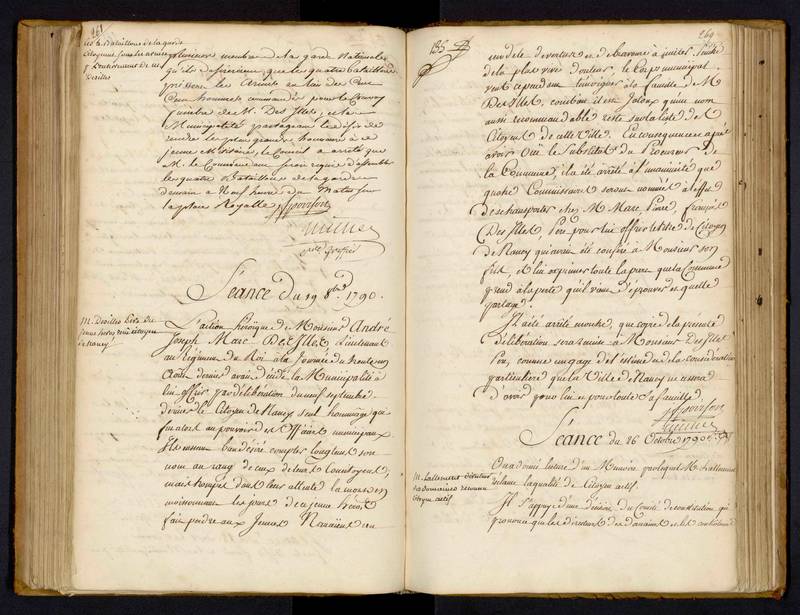 268
les 4. Bataillons de la garde
citoyenne
l'enterrement de M.
Desilles
plusieurs membres de la garde Nationale
qu'ils desireroient que les quatre bataillons
prissent les armes au lieu des Cent
Cinq hommes commandés pour le Convoy
funebre de M. Des Illes, et la
Municipalité partageant le desir de
rendre les plus grands honneurs à ce
jeune Militaire, le Conseil a arrêté que
M. le Commandant seroit requis d'assembler
les quatre Bataillons de la garde
demain à Neuf heures du Matin sur
la place Royalle
Poirson
Séance du 19 8bre 1790.
M. Desilles Pere du
jeune heros reçu citoyen
de Nancy
L'action héroïque de Monsieur André
Joseph Marc Des Illes, Lieutenant
au Régiment du Roi à la Journée du trente un
Août dernier avoit décidé la Municipalité à
lui offrir par délibération du neuf septembre
dernier le Citoyen de Nancy, seul hommage qui
fut alors au pouvoir des Officiers municipaux
Ils eussent bien désiré compter longtems son
nom au rang de ceux de leurs Concitoyens,
mais trompés dans leur attente la mort en
moissonnant les jours de ce jeune héros,
fait perdre aux Jeunes Nancéiens un
269
modele de vertus et de bravoure à imiter. Pénétré
de la plus vive douleur, le Corps municipal
veut cependant témoigner à la famille de M.
Des Illes, combien il est Jaloux qu'un nom
aussi recommandable reste sur la liste des
Citoyens de cette Ville. En conséquence après
avoir Ouï le Substitut du Procureur de
la Commune, il a été arrêté à l'unanimité que
quatre Commissaires seront nommés à l'effet
de se transporter chez M. Marc Pierre François
Des Illes, Pere pour lui offrir le titre de Citoyen
de Nancy qui avoit été conféré à Monsieur son
fils, et lui exprimer toute la part que la Commune
prend à la perte qu'il vient d'éprouver et qu'elle
partage.
Il a été arrêté en outre, que copie de la presente
délibération sera remise à Monsieur Des Illes
Pere, comme un gage de l'estime et de la considération
particuliere que la Ville de Nancy ne cessera
d'avoir pour lui et pour toute sa famille
Poirson
Séance du 26 Octobre 1790.
M. Lallemant directeur
des domaines reconnu
Citoyen actif.
On a donné lecture d'un Mémoire par lequel M. Lallemant
réclame la qualité de Citoyen actif.
Il s'appuye d'une décision du Comité de constitution qui
prononce que les directeurs des domaines et les contrôleurs